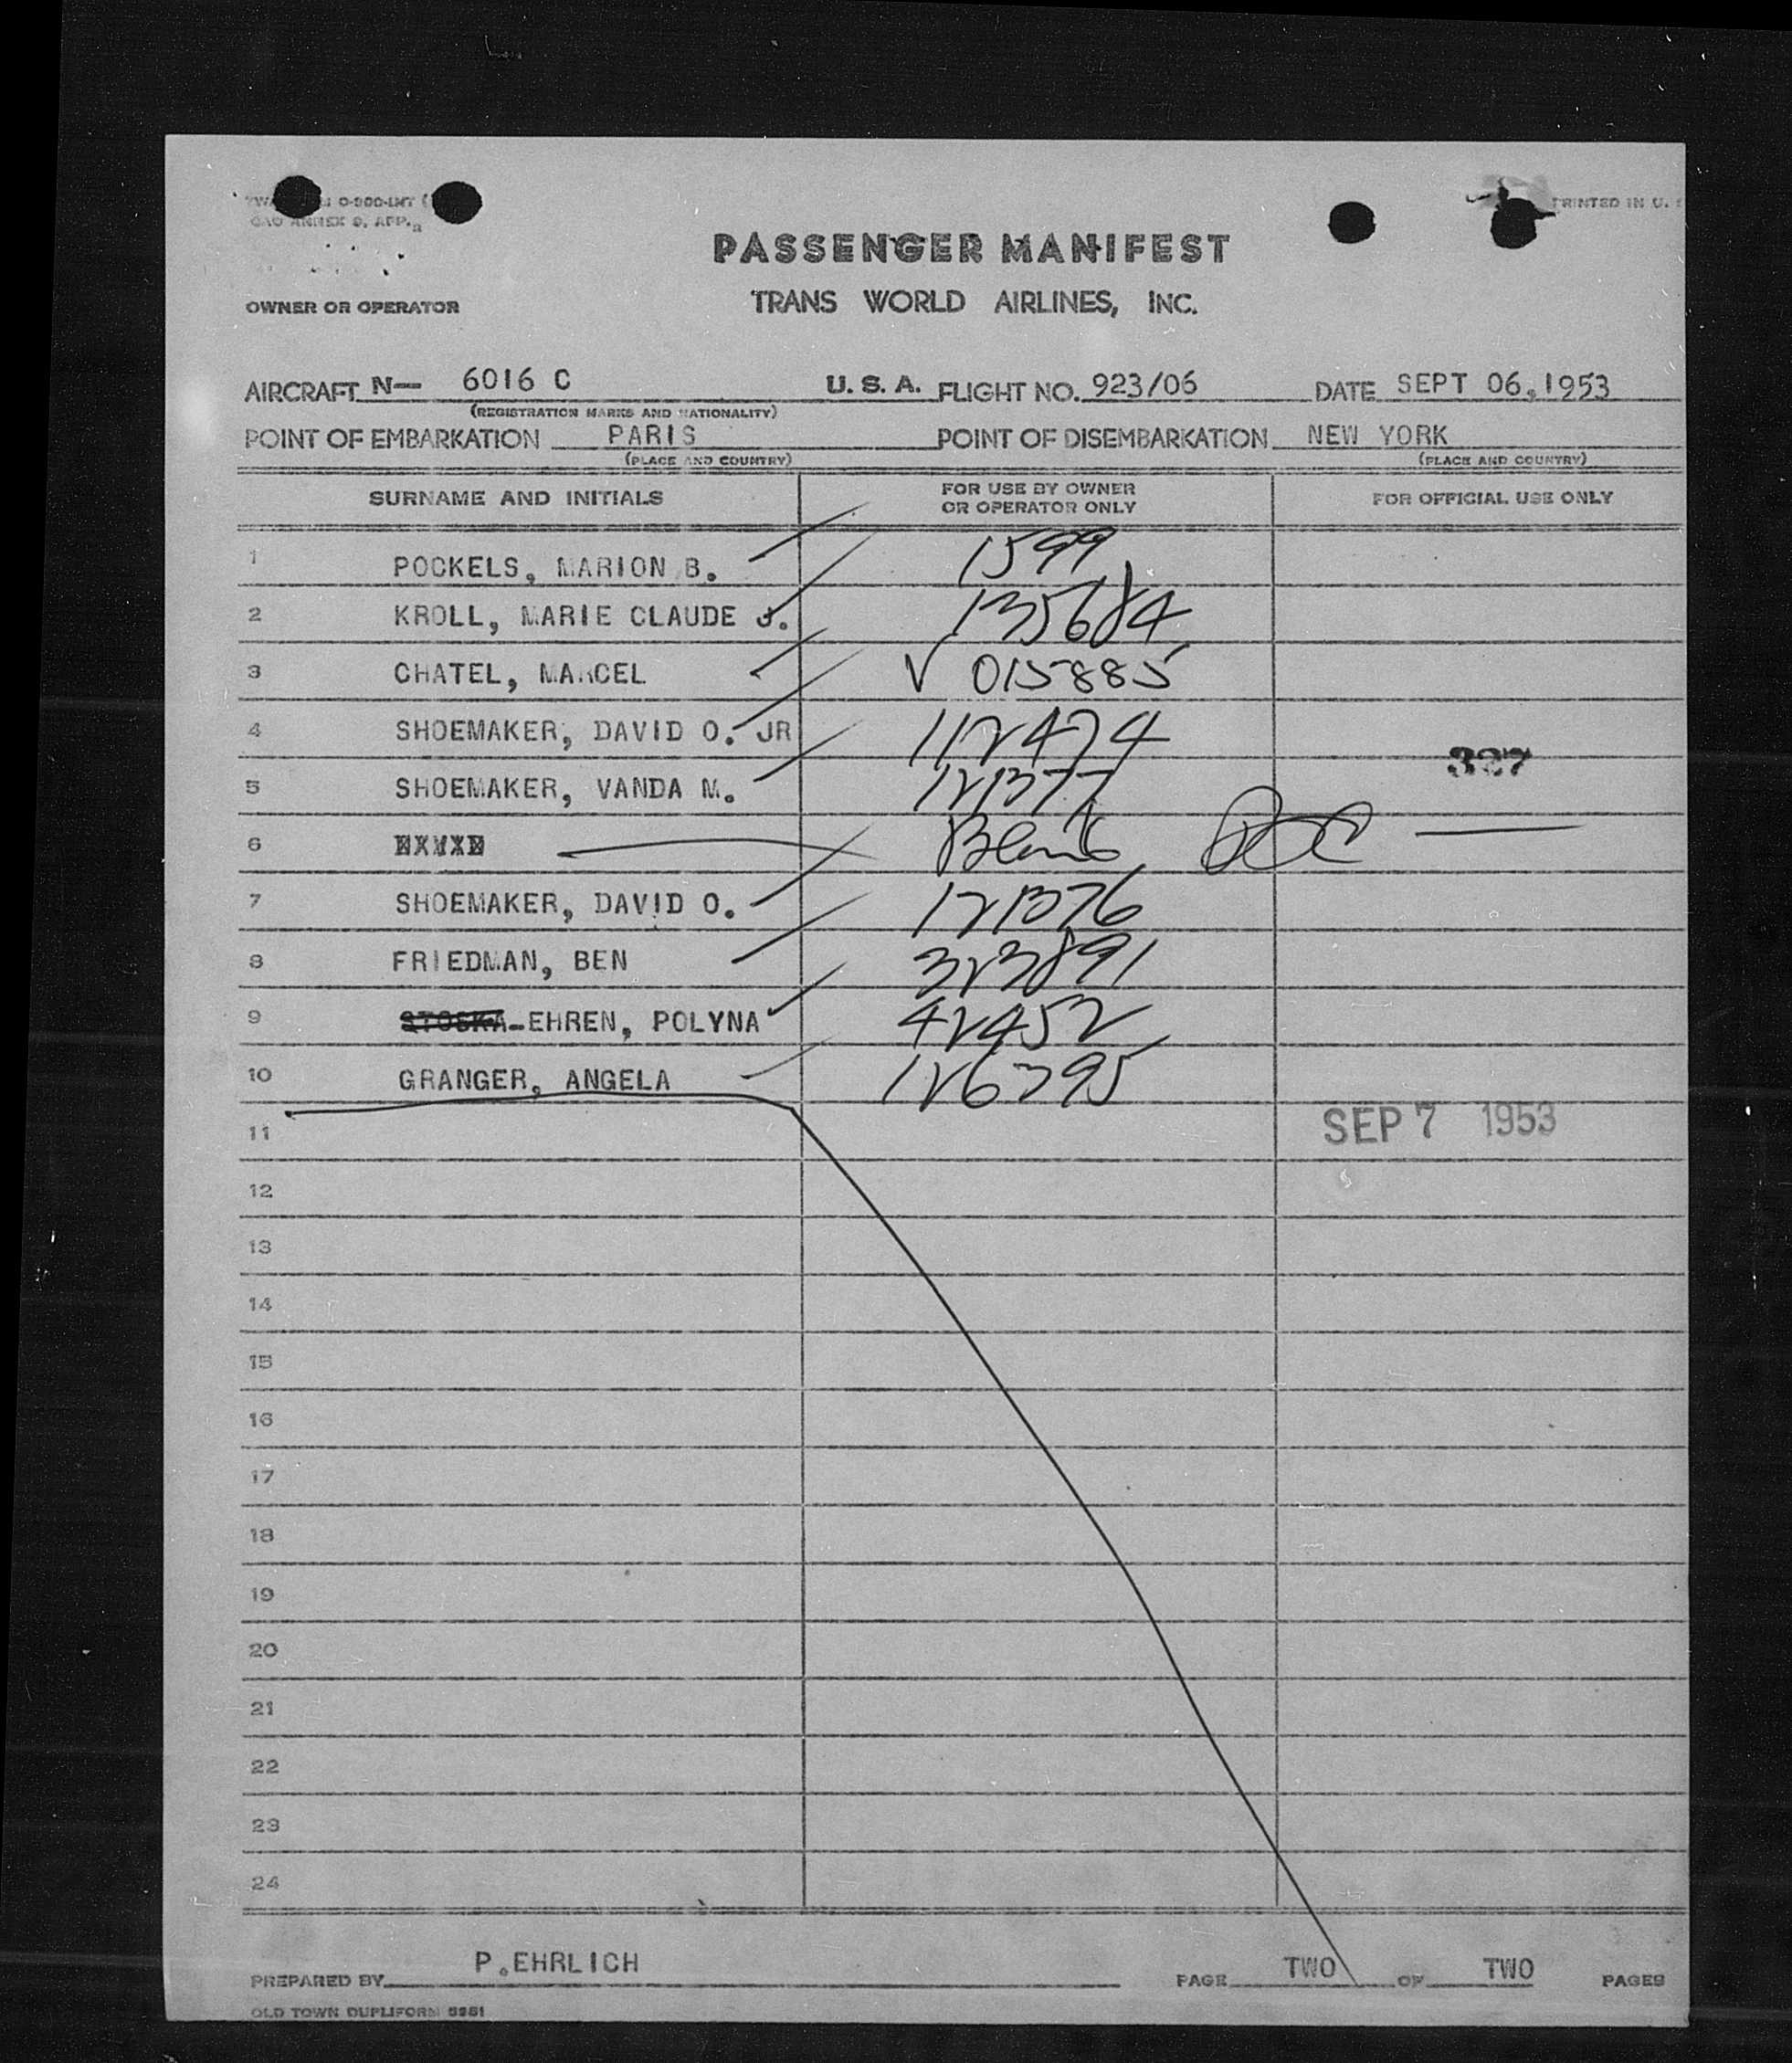 O-900-INT
PRINTED IN U.
PASSENGER MANIFEST
OWNER OR OPERATOR
TRANS WORLD AIRLINES, INC.
AIRCRAFT N— 6016 C U. S. A. FLIGHT NO. 923/06 DATE SEPT 06,1953
(REGISTRATION MARKS AND NATIONALITY)
POINT OF EMBARKATION PARIS POINT OF DISEMBARKATION NEW YORK
(PLACE AND COUNTRY) (PLACE AND COUNTRY)
SURNAME AND INITIALS FOR USE BY OWNER OR OPERATOR ONLY FOR OFFICIAL USE ONLY
1 POCKELS, MARION B. 1599
2 KROLL, MARIE CLAUDE J. 135684
3 CHATEL, MARCEL √ 015885
4 SHOEMAKER, DAVID O. JR 112474
327
5 SHOEMAKER, VANDA M. 121377
6 Blank
7 SHOEMAKER, DAVID O. 121376
8 FRIEDMAN, BEN 323891
9 STOSKA-EHREN, POLYNA 42452
10 GRANGER, ANGELA 126795
11 SEP 7 1953
12
13
14
15
16
17
18
19
20
21
22
23
24
PREPARED BY P.EHRLICH PAGE TWO OF TWO PAGES
OLD TOWN DUPLIFORM 5951